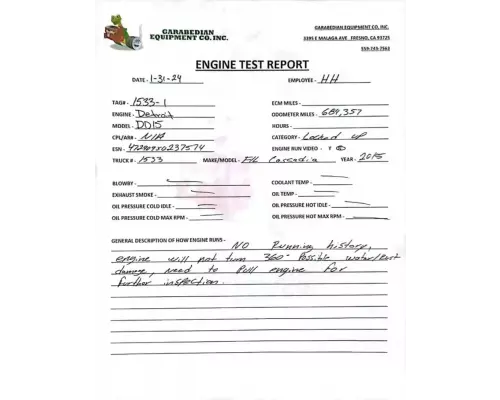 GARABEDIAN
EQUIPMENT CO. INC.
GARABEDIAN EQUIPMENT CO, INC.
3395 E MALAGA AVE FRESNO, CA 93725
559-745-7563
ENGINE TEST REPORT
DATE - 1-31-24 EMPLOYEE - HH
TAG# - 1533-1 ECM MILES -
ENGINE - Detroit ODOMETER MILES - 689,357
MODEL - DD15 HOURS -
CPL/AR# - N/A CATEGORY - Locked up
ESN - 472909S0237574 ENGINE RUN VIDEO - Y N
TRUCK # - 1533 MAKE/MODEL - F/L Cascadia YEAR - 2015
BLOWBY - COOLANT TEMP -
EXHAUST SMOKE - OIL TEMP -
OIL PRESSURE COLD IDLE - OIL PRESSURE HOT IDLE -
OIL PRESSURE COLD MAX RPM - OIL PRESSURE HOT MAX RPM -
GENERAL DESCRIPTION OF HOW ENGINE RUNS - NO Running history,
engine will not turn 360° Possible water/Rust
damage, need to Pull engine for
further inspection.